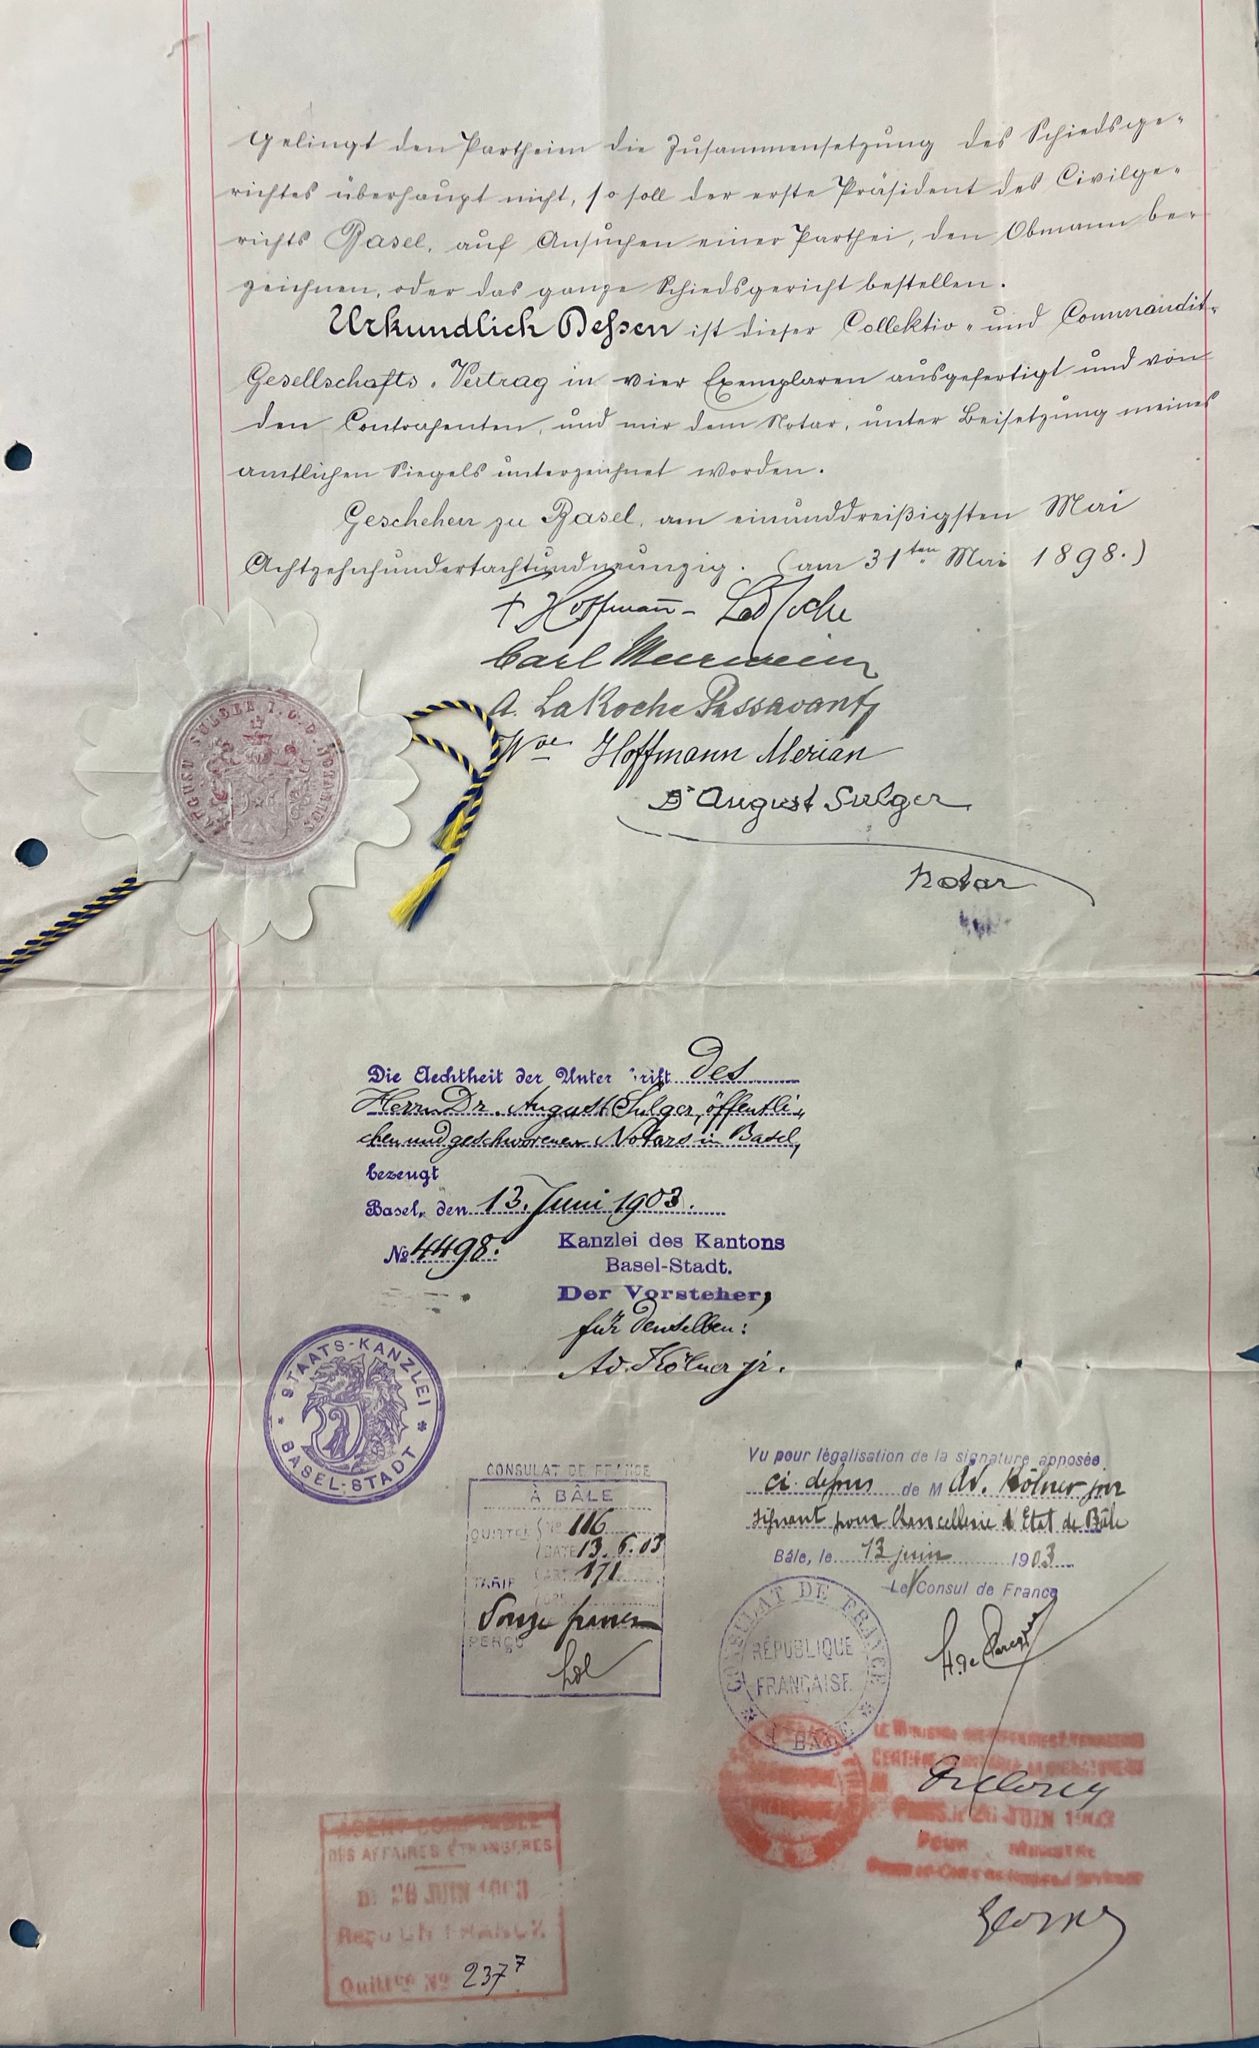 Gelingt den Partheien die Zusammensetzung des Schiedsge-
richtes überhaupt nicht, so soll der erste Präsident des Civilge-
richts Basel, auf Ansuchen einer Parthei, den Obmann be-
zeichnen, oder das ganze Schiedsgericht bestellen.
Urkundlich Dessen ist dieser Collektiv- und Commandit-
Gesellschafts-Vertrag in vier Exemplaren ausgefertigt und von
den Contrahenten, und mir dem Notar, unter Beisetzung meines
amtlichen Siegels unterzeichnet worden.
Geschehen zu Basel, am einunddreißigsten Mai
Achtzehnhundertachtundneunzig. (am 31ten Mai 1898.)
Hoffmann-LaRoche
Carl Meerwein
A. LaRoche Passavant
Wve Hoffmann Merian
Dr August Sulger
Notar
AUGUST SULGER I.U.D. NOTARIUS
Die Aechtheit der Unterschrift des
Herrn Dr. August Sulger, öffentli-
chen und geschworenen Notars in Basel,
bezeugt
Basel, den 13. Juni 1903.
No 4498.
Kanzlei des Kantons
Basel-Stadt.
Der Vorsteher,
für denselben:
Ad. Kölner jr.
STAATS-KANZLEI
BASEL-STADT
CONSULAT DE FRANCE
À BÂLE
QUITTCE No 116
DATE 13.6.03
TARIF ART 171
PERÇU
Vu pour légalisation de la signature apposée
ci-dessus de M Ad. Kölner jor
signant pour Chancellerie d'Etat de Bâle
Bâle, le 13 juin 1903
Le Consul de France
CONSULAT DE FRANCE
RÉPUBLIQUE
FRANÇAISE
À BÂLE
LE MINISTRE DES AFFAIRES ÉTRANGÈRES
CERTIFIE
M
PARIS, le 26 JUIN 1903
POUR MINISTRE
AGENT COMPTABLE
DES AFFAIRES ÉTRANGÈRES
26 JUIN 1903
Reçu UN FRANC
Quittce No 2377